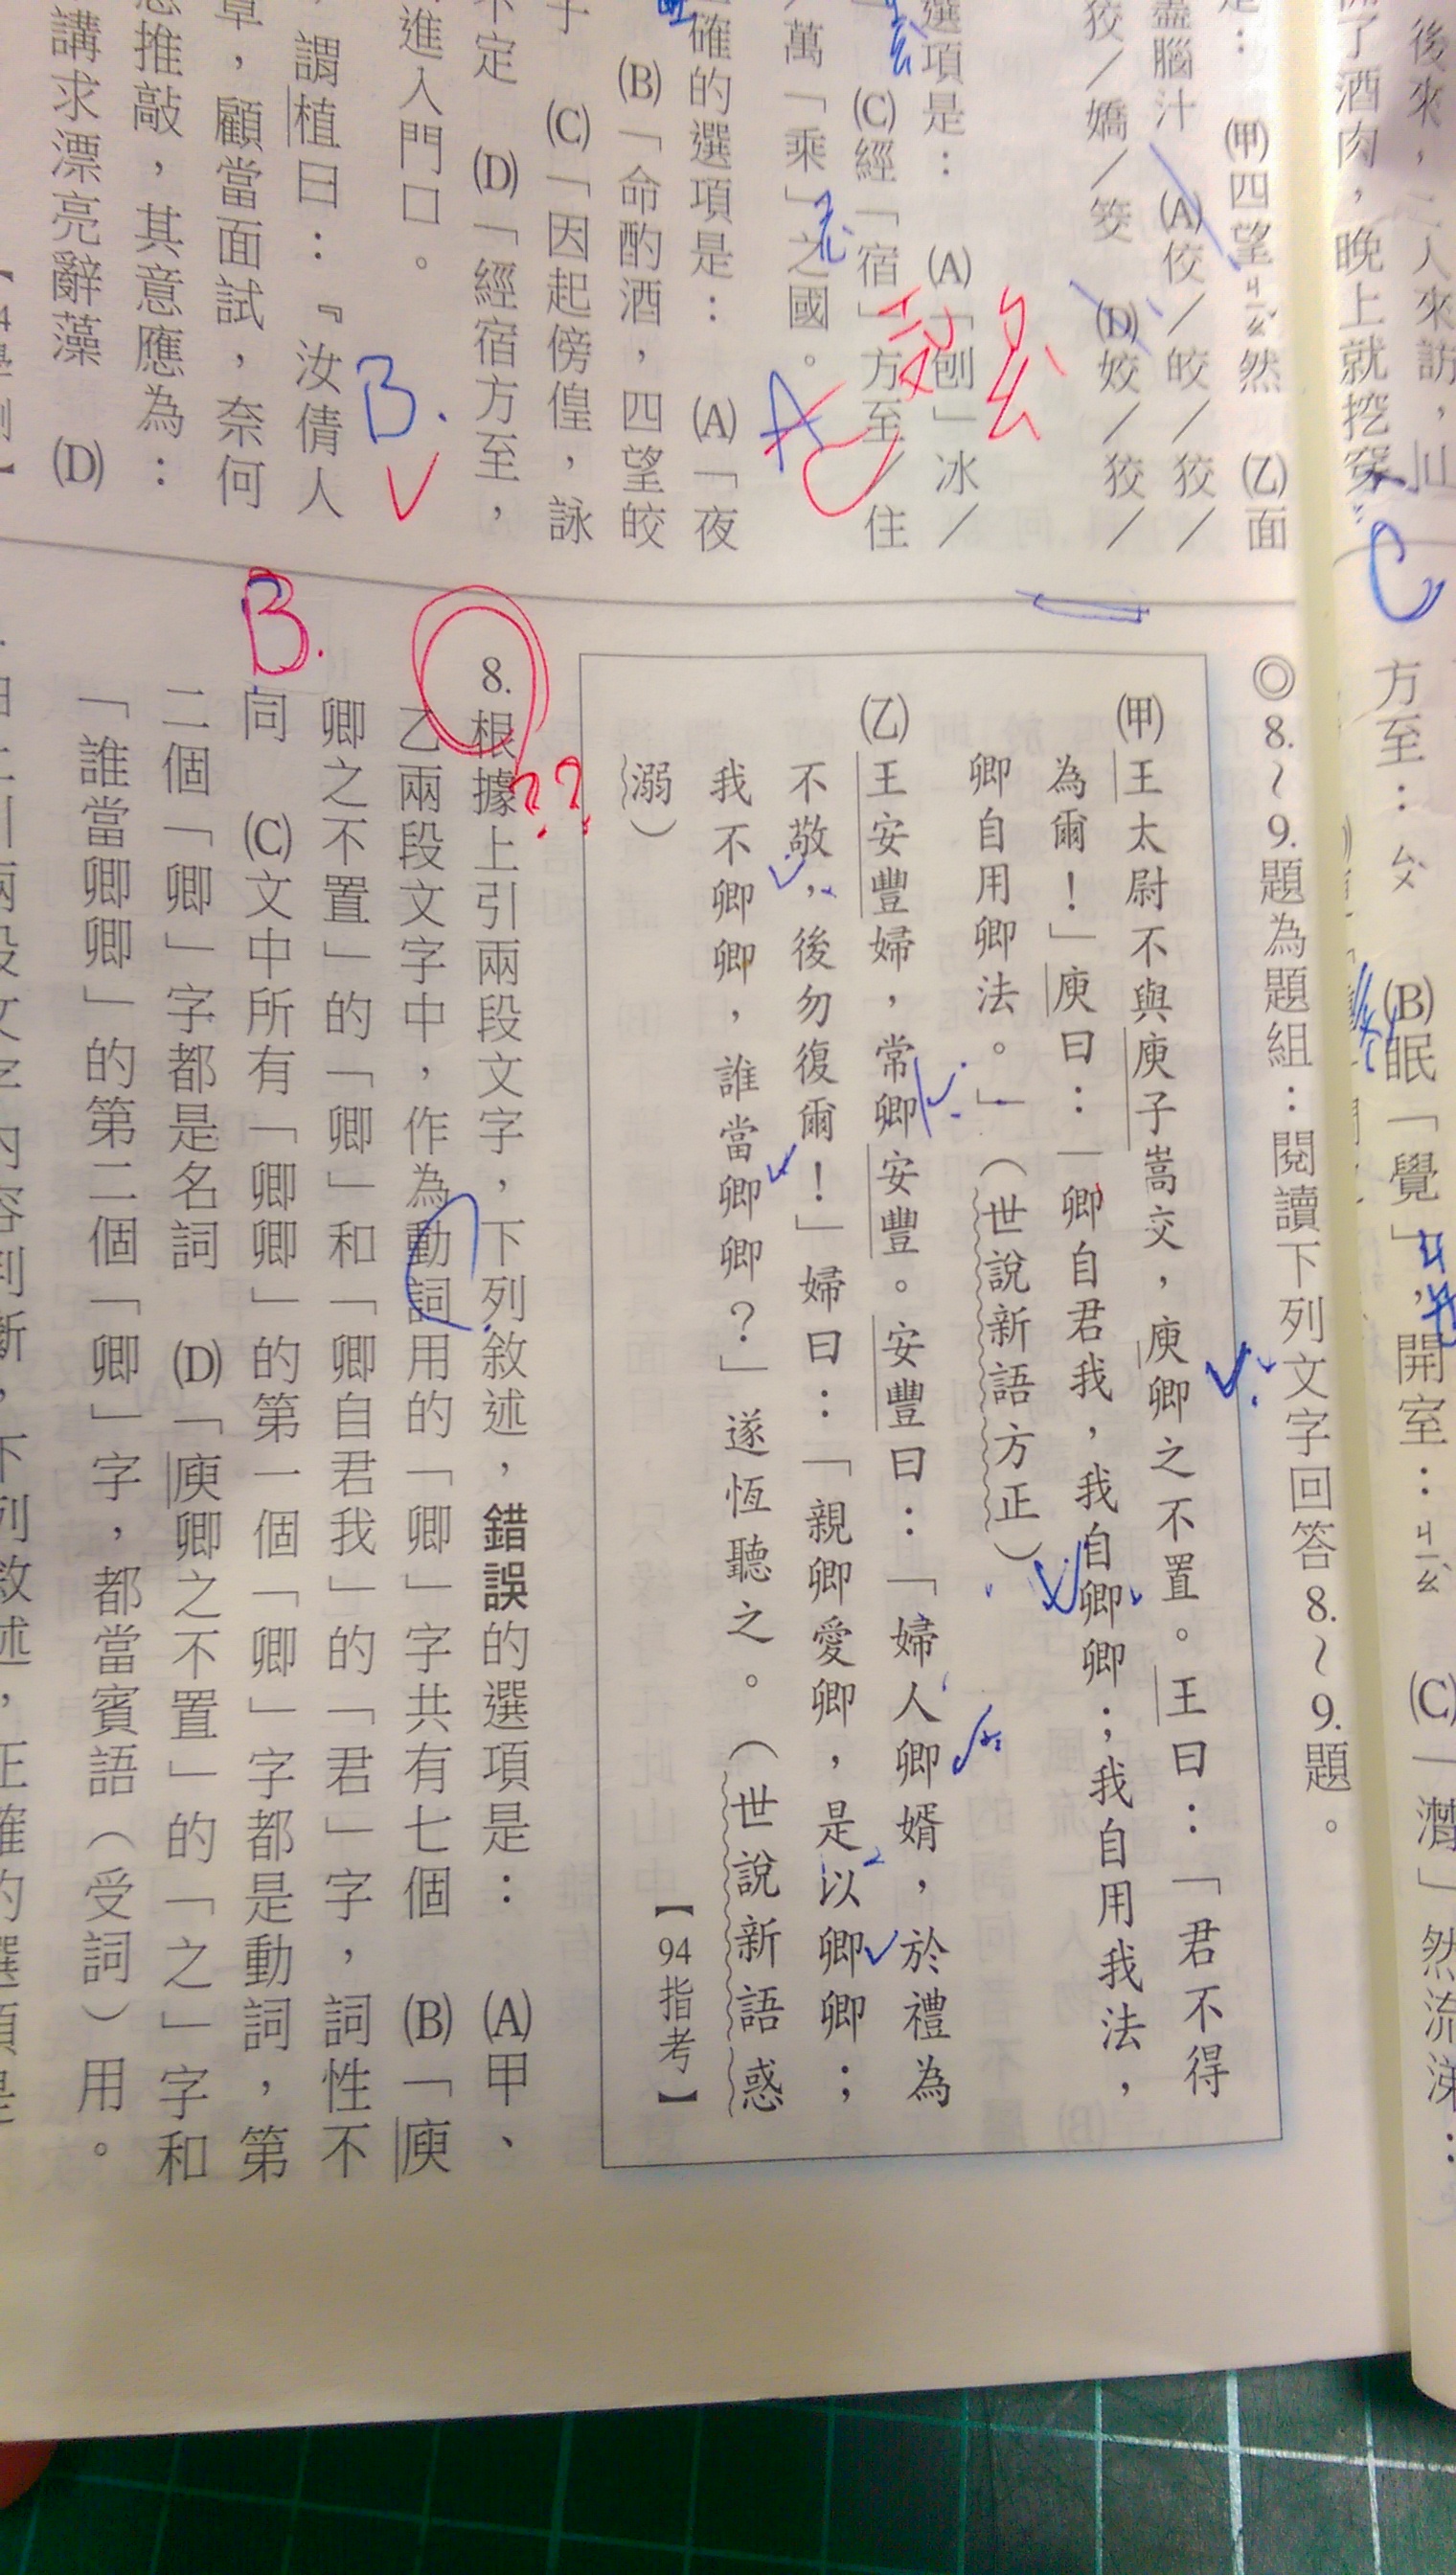 後來，二人來訪，
了酒肉，晚上就挖穿
C
：　㈙四望ㄐㄧㄠˇ然　㈚面
盡腦汁　(A)佼／皎／狡／
狡／嬌／筊　(D)姣／狡／
選項是：　(A)「刨」冰／
(C)經「宿」方至／住
萬「乘」之國。
A
確的選項是：　(A)「夜
(B)「命酌酒，四望皎
(C)「因起傍偟，詠
定　(D)「經宿方至，
進入門口。
B.
謂植曰：『汝倩人
章，顧當面試，奈何
推敲，其意應為：
講求漂亮辭藻　(D)
方至：ㄙㄨˋ　(B)眠「覺」，開室：ㄐㄧㄠˋ　(C)「潸」然流涕：
◎8.～9.題為題組：閱讀下列文字回答8.～9.題。
㈙王太尉不與庾子嵩交，庾卿之不置。王曰：「君不得
為爾！」庾曰：「卿自君我，我自卿卿；我自用我法，
卿自用卿法。」（世說新語方正）
㈚王安豐婦，常卿安豐。安豐曰：「婦人卿婿，於禮為
不敬，後勿復爾！」婦曰：「親卿愛卿，是以卿卿；
我不卿卿，誰當卿卿？」遂恆聽之。（世說新語惑
溺）
【94指考】
B.
??
8.根據上引兩段文字，下列敘述，錯誤的選項是：　(A)甲、
乙兩段文字中，作為動詞用的「卿」字共有七個　(B)「庾
卿之不置」的「卿」和「卿自君我」的「君」字，詞性不
同　(C)文中所有「卿卿」的第一個「卿」字都是動詞，第
二個「卿」字都是名詞　(D)「庾卿之不置」的「之」字和
「誰當卿卿」的第二個「卿」字，都當賓語（受詞）用。